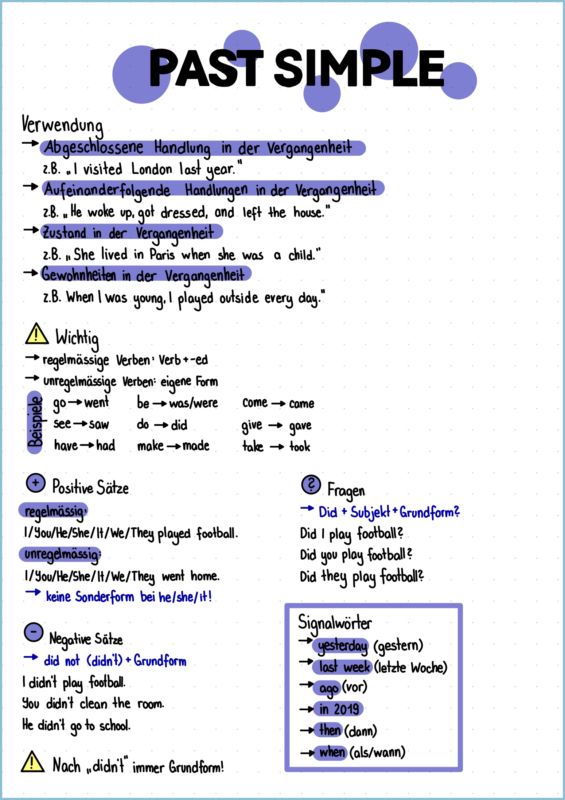 PAST SIMPLE
Verwendung
→ Abgeschlossene Handlung in der Vergangenheit
z.B. „I visited London last year."
→ Aufeinanderfolgende Handlungen in der Vergangenheit
z.B. „He woke up, got dressed, and left the house."
→ Zustand in der Vergangenheit
z.B. „She lived in Paris when she was a child."
→ Gewohnheiten in der Vergangenheit
z.B. When I was young, I played outside every day."
! Wichtig
→ regelmässige Verben: Verb + -ed
→ unregelmässige Verben: eigene Form
Beispiele
go → went be → was/were come → came
see → saw do → did give → gave
have → had make → made take → took
+ Positive Sätze
regelmässig:
I/You/He/She/It/We/They played football.
unregelmässig:
I/You/He/She/It/We/They went home.
→ keine Sonderform bei he/she/it!
- Negative Sätze
→ did not (didn't) + Grundform
I didn't play football.
You didn't clean the room.
He didn't go to school.
! Nach „didn't" immer Grundform!
? Fragen
→ Did + Subjekt + Grundform?
Did I play football?
Did you play football?
Did they play football?
Signalwörter
→ yesterday (gestern)
→ last week (letzte Woche)
→ ago (vor)
→ in 2019
→ then (dann)
→ when (als/wann)